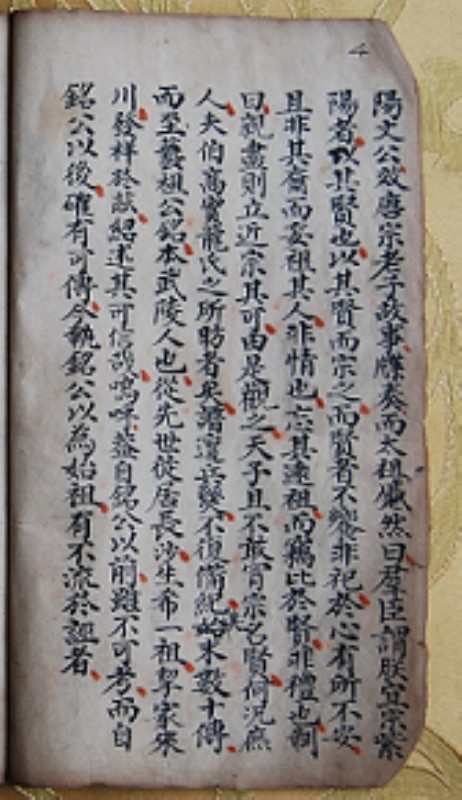 4
陽文公效唐宗老子故事牒奏而太祖儼然曰羣臣謂朕宜宗紫
陽者以其賢也以其賢而宗之而賢者不饗非祀於心有所不安
且非其裔而妄祖其人非情也忘其遠祖而竊比於賢非禮也制
曰親盡則立近宗其可由是觀之天子且不敢冒宗乞賢何況庶
人夫伯高實龍氏之所昉者矣譜遭兵燹不復備紀始末數十傳
而至藝祖公銘本武陵人也從先世徙居長沙生希一祖挈家來
川發祥於茲紹述其可信哉嗚呼蓋自銘公以前雖不可考而自
銘公以後確有可傳今執銘公以為始祖有不流於誣者